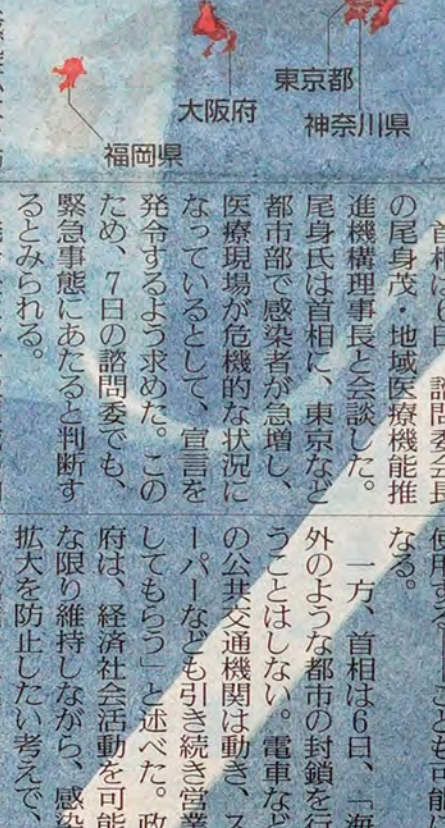 東京都
神奈川県
大阪府
福岡県
首相は6日、諮問委会長
の尾身茂・地域医療機能推
進機構理事長と会談した。
尾身氏は首相に、東京など
都市部で感染者が急増し、
医療現場が危機的な状況に
なっているとして、宣言を
発令するよう求めた。この
ため、7日の諮問委でも、
緊急事態にあたると判断す
るとみられる。
使用する――ことも可能に
なる。
一方、首相は6日、「海
外のような都市の封鎖を行
うことはしない。電車など
の公共交通機関は動き、ス
ーパーなども引き続き営業
してもらう」と述べた。政
府は、経済社会活動を可能
な限り維持しながら、感染
拡大を防止したい考えで、